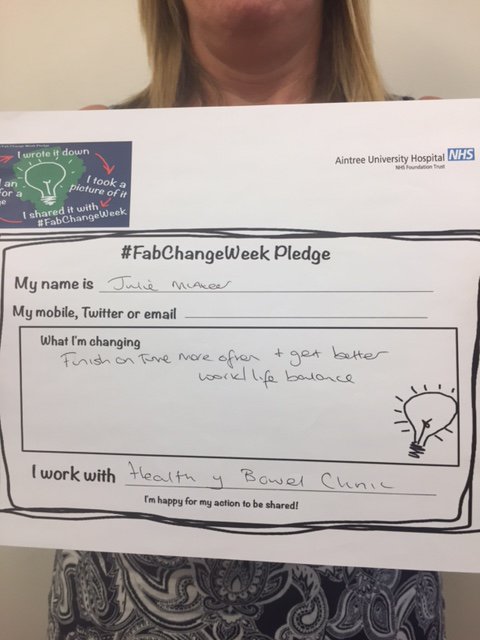 Fab Change Week Pledge
I wrote it down
I took a
picture of it
I shared it with
#FabChangeWeek
Aintree University Hospital NHS
NHS Foundation Trust
#FabChangeWeek Pledge
My name is Julie McAteer
My mobile, Twitter or email
What I'm changing
Finish on Time more often + get better
work/life balance
I work with Healthy Bowel Clinic
I'm happy for my action to be shared!